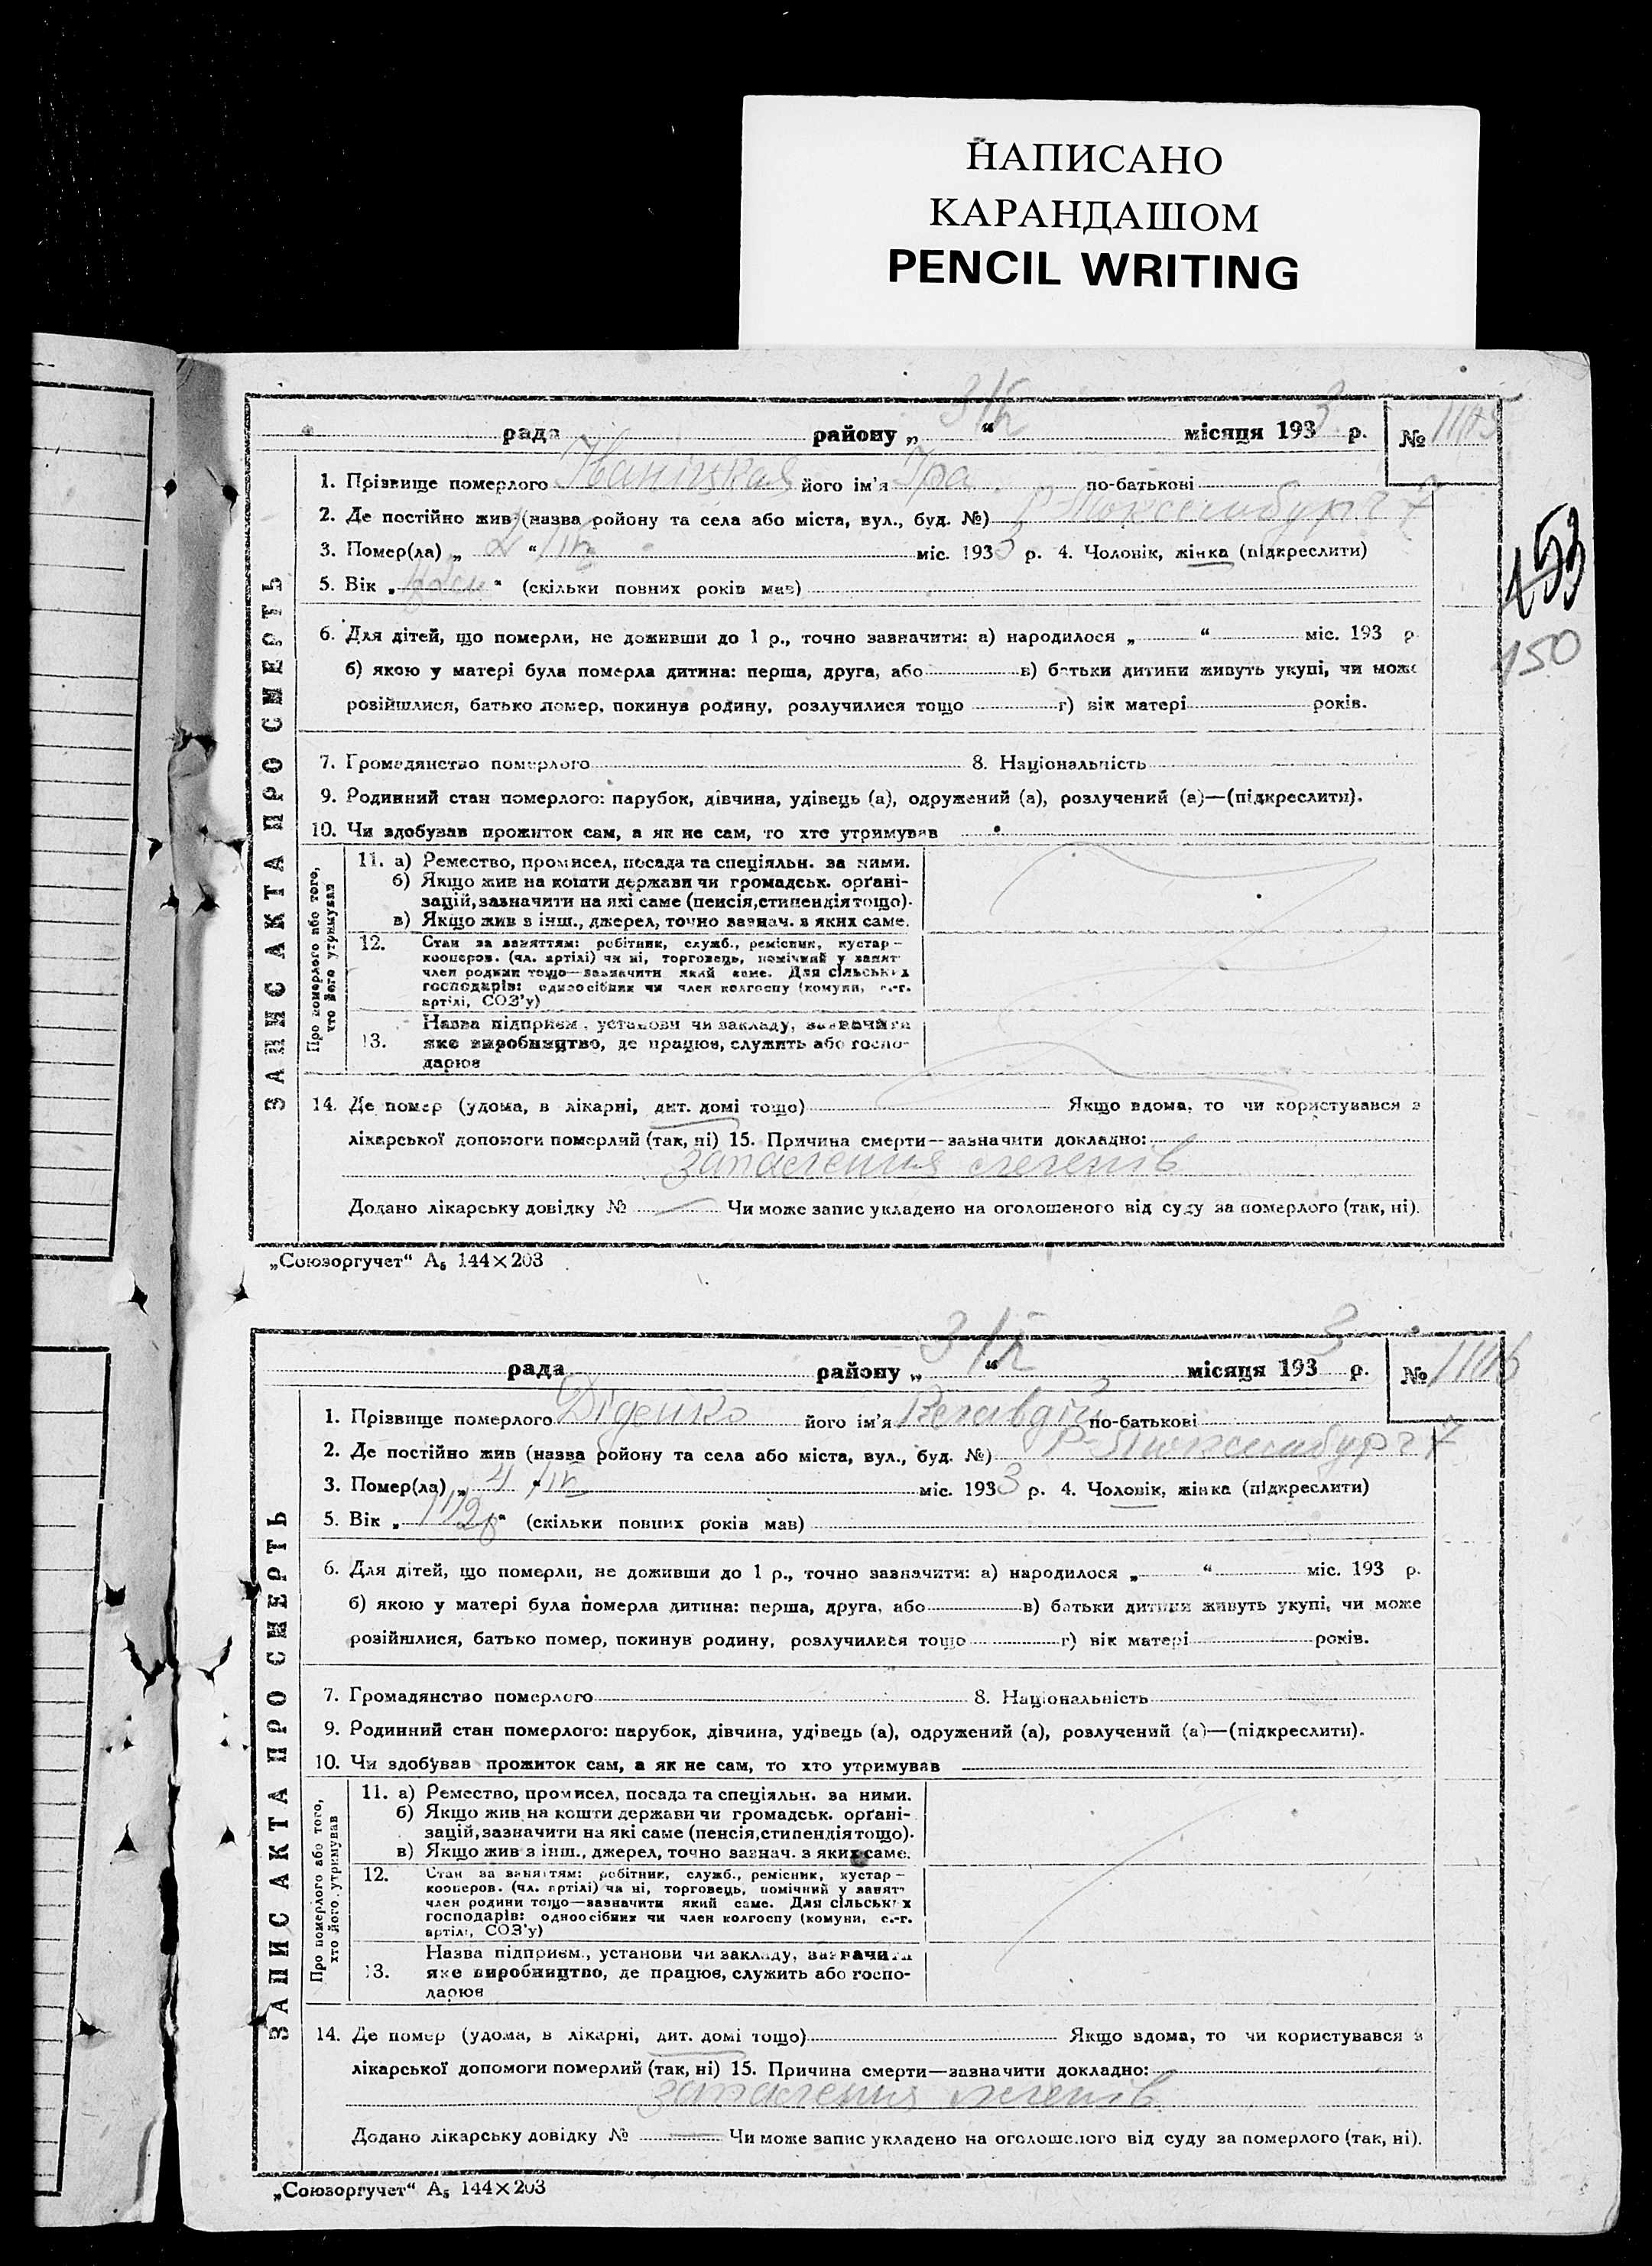 НАПИСАНО
КАРАНДАШОМ
PENCIL WRITING
рада району „ “ місяця 1933 р. № 1105
1. Прізвище померлого його ім'я Іра по-батькові
2. Де постійно жив (назва ройону та села або міста, вул., буд. №) Р-Люксембург 7
3. Помер(ла) „ 2 “ міс. 1933 р. 4. Чоловік, жінка (підкреслити)
5. Вік „ “ (скільки повних років мав)
6. Для дітей, що померли, не доживши до 1 р., точно зазначити: а) народилося „ “ міс. 193 р.
б) якою у матері була померла дитина: перша, друга, або в) батьки дитини живуть укупі, чи може
розійшлися, батько помер, покинув родину, розлучилися тощо г) вік матері років.
453
150
7. Громадянство померлого 8. Національність
9. Родинний стан померлого: парубок, дівчина, удівець (а), одружений (а), розлучений (а)—(підкреслити).
10. Чи здобував прожиток сам, а як не сам, то хто утримував
ЗАПИС АКТА ПРО СМЕРТЬ
Про померлого або того,
хто його утримував
11. а) Ремество, промисел, посада та спеціяльн. за ними.
б) Якщо жив на кошти держави чи громадськ. орґані-
зацій, зазначити на які саме (пенсія, стипендія тощо).
в) Якщо жив з інш., джерел, точно зазнач. з яких саме.
12. Стан за заняттям: робітник, служб., ремісник, кустар—
кооперов. (чл. артілі) чи ні, торговець, помічний у занят
член родини тощо—зазначити який саме. Для сільських
господарів: одноосібник чи член колгоспу (комуни, с.-г.
артілі, СОЗ'у)
Назва підприєм., установи чи закладу, зазначити
13. яке виробництво, де працює, служить або госпо-
дарює
14. Де помер (удома, в лікарні, дит. домі тощо) Якщо вдома, то чи користувався з
лікарської допомоги померлий (так, ні) 15. Причина смерти—зазначити докладно:
запалення легенів
Додано лікарську довідку № Чи може запис укладено на оголошеного від суду за померлого (так, ні).
„Союзоргучет“ А₅ 144×203
рада району „ “ місяця 1933 р. № 1106
1. Прізвище померлого Діденко його ім'я по-батькові
2. Де постійно жив (назва ройону та села або міста, вул., буд. №) Р-Люксембург 7
3. Помер(ла) „ 4 “ міс. 1933 р. 4. Чоловік, жінка (підкреслити)
5. Вік „ 1 1/2 р “ (скільки повних років мав)
6. Для дітей, що померли, не доживши до 1 р., точно зазначити: а) народилося „ “ міс. 193 р.
б) якою у матері була померла дитина: перша, друга, або в) батьки дитини живуть укупі, чи може
розійшлися, батько помер, покинув родину, розлучилися тощо г) вік матері років.
7. Громадянство померлого 8. Національність
9. Родинний стан померлого: парубок, дівчина, удівець (а), одружений (а), розлучений (а)—(підкреслити).
10. Чи здобував прожиток сам, а як не сам, то хто утримував
ЗАПИС АКТА ПРО СМЕРТЬ
Про померлого або того,
хто його утримував
11. а) Ремество, промисел, посада та спеціяльн. за ними.
б) Якщо жив на кошти держави чи громадськ. орґані-
зацій, зазначити на які саме (пенсія, стипендія тощо).
в) Якщо жив з інш., джерел, точно зазнач. з яких саме.
12. Стан за заняттям: робітник, служб., ремісник, кустар—
кооперов. (чл. артілі) чи ні, торговець, помічний у занят
член родини тощо—зазначити який саме. Для сільських
господарів: одноосібник чи член колгоспу (комуни, с.-г.
артілі, СОЗ'у)
Назва підприєм., установи чи закладу, зазначити
13. яке виробництво, де працює, служить або госпо-
дарює
14. Де помер (удома, в лікарні, дит. домі тощо) Якщо вдома, то чи користувався з
лікарської допомоги померлий (так, ні) 15. Причина смерти—зазначити докладно:
запалення легенів
Додано лікарську довідку № Чи може запис укладено на оголошеного від суду за померлого (так, ні).
„Союзоргучет“ А₅ 144×203